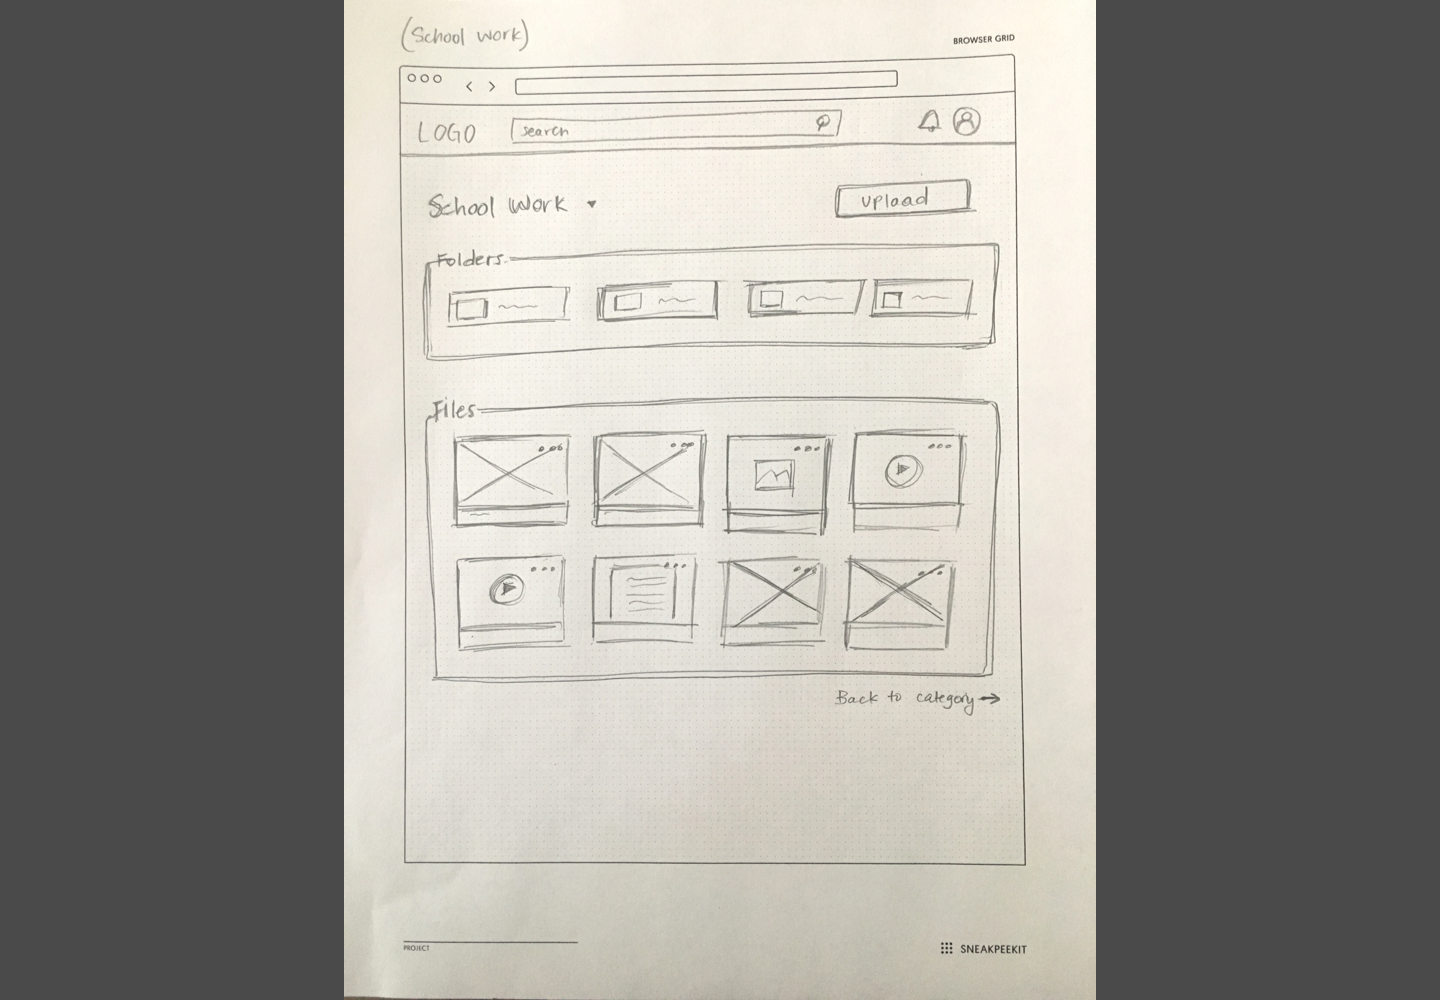 (School work)
BROWSER GRID
LOGO
search
School Work
upload
Folders
Files
Back to category →
PROJECT
SNEAKPEEKIT